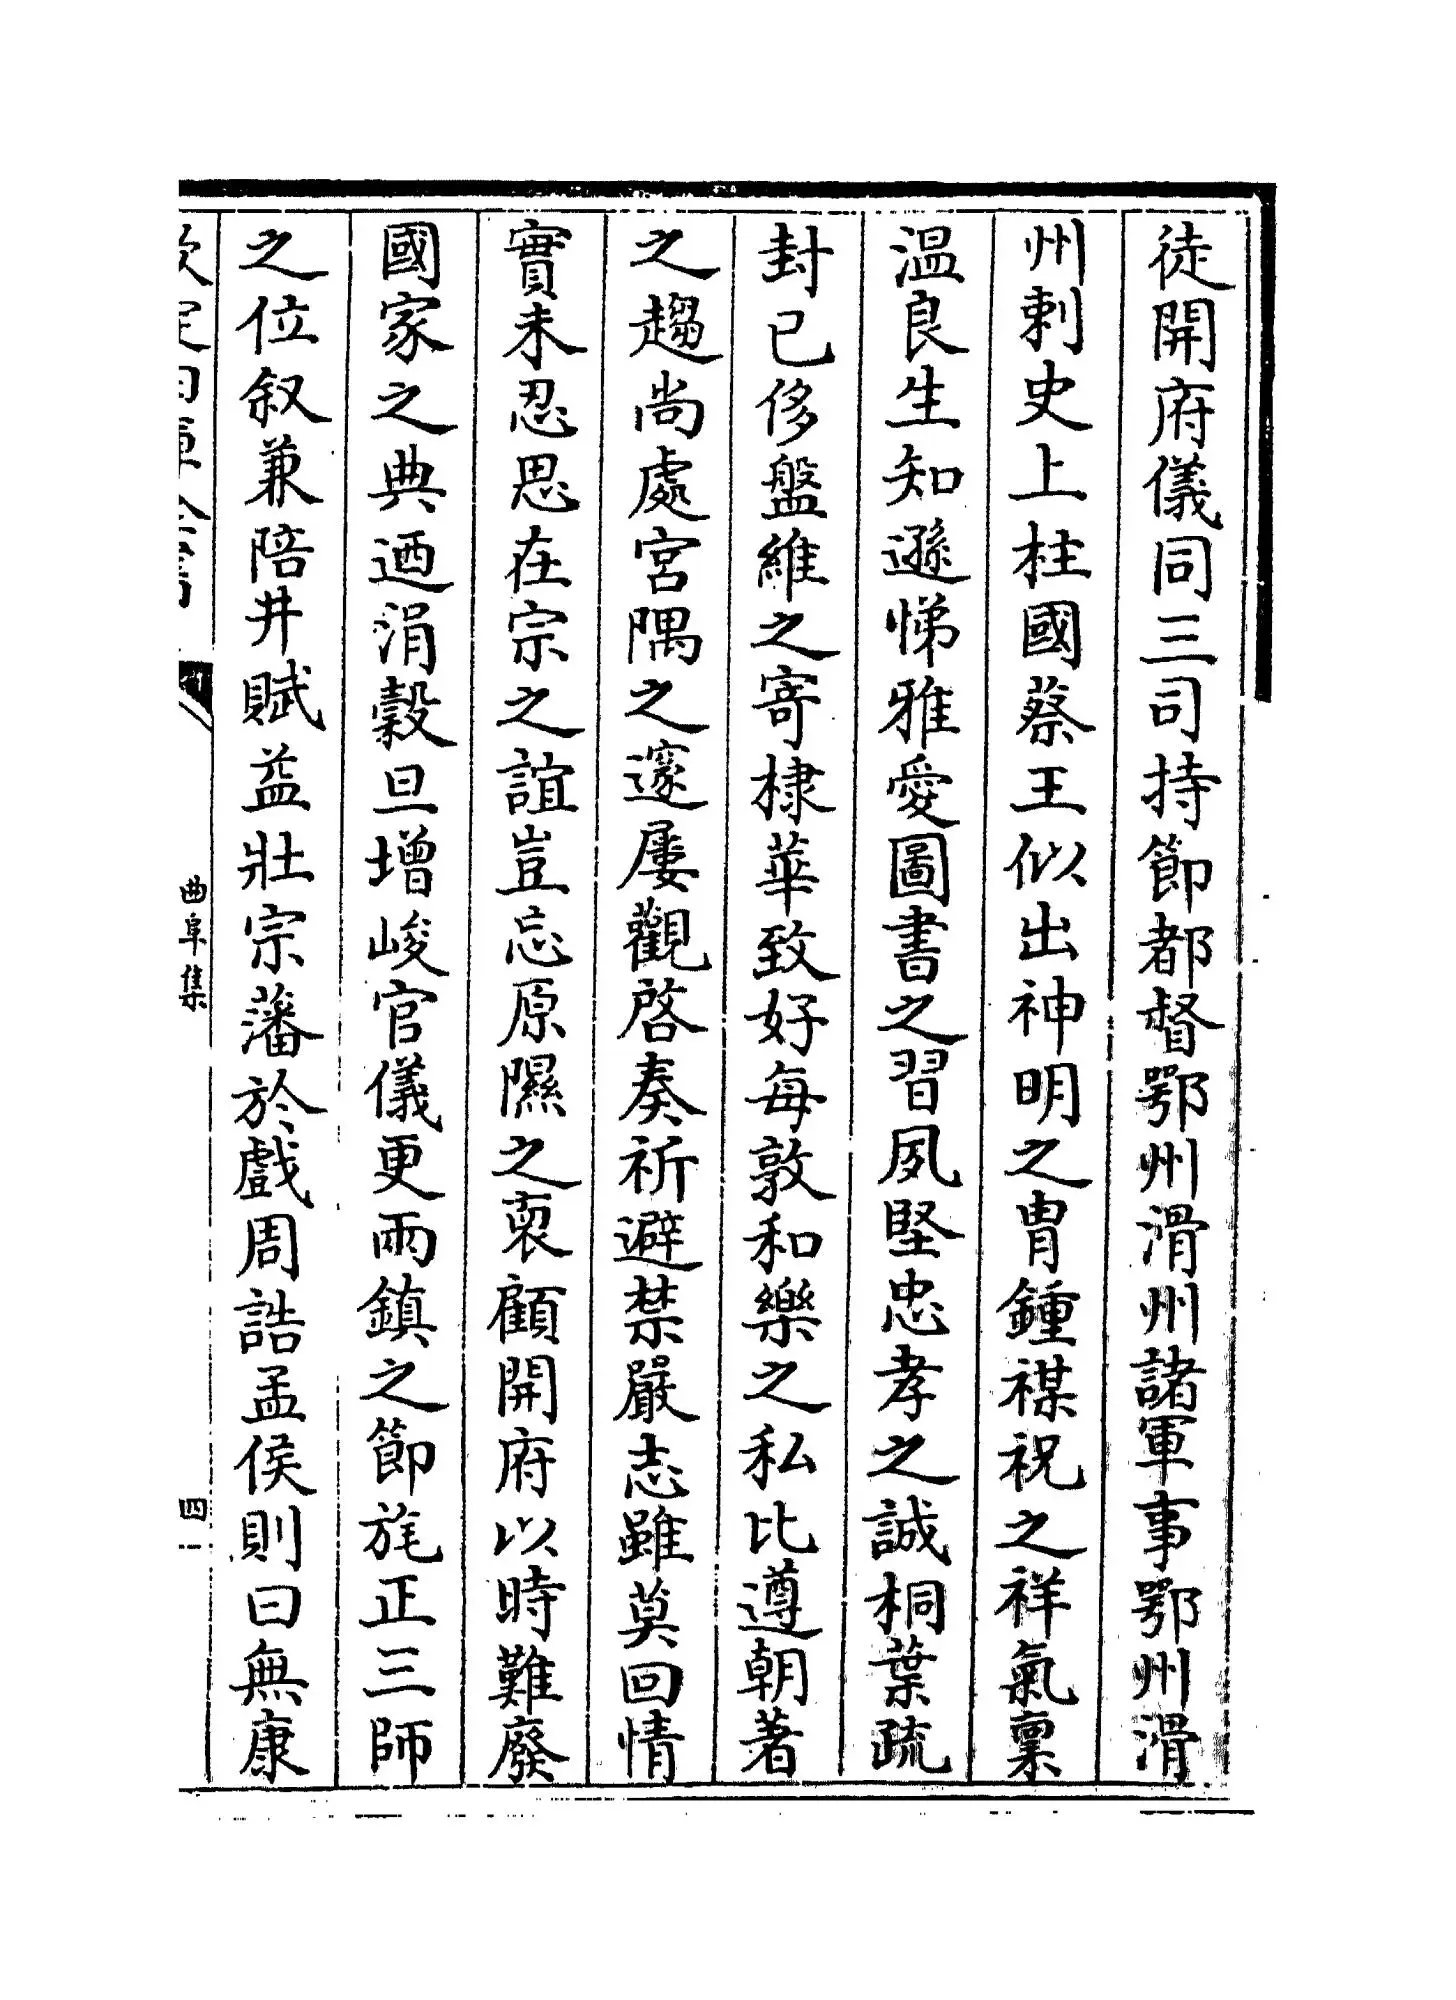 徒開府儀同三司持節都督鄂州滑州諸軍事鄂州滑
州刺史上柱國蔡王似出神明之胄鍾禖祝之祥氣稟
温良生知遜悌雅愛圖書之習夙堅忠孝之誠桐葉疏
封已侈盤維之寄棣華致好每敦和樂之私比遵朝著
之趨尚處宮隅之邃屢觀啓奏祈避禁嚴志雖莫回情
實未忍思在宗之誼豈忘原隰之裒顧開府以時難廢
國家之典迺涓穀旦增峻官儀更兩鎮之節旄正三師
之位叙兼陪井賦益壯宗藩於戲周誥孟侯則曰無康
欽定四庫全書
曲阜集
四